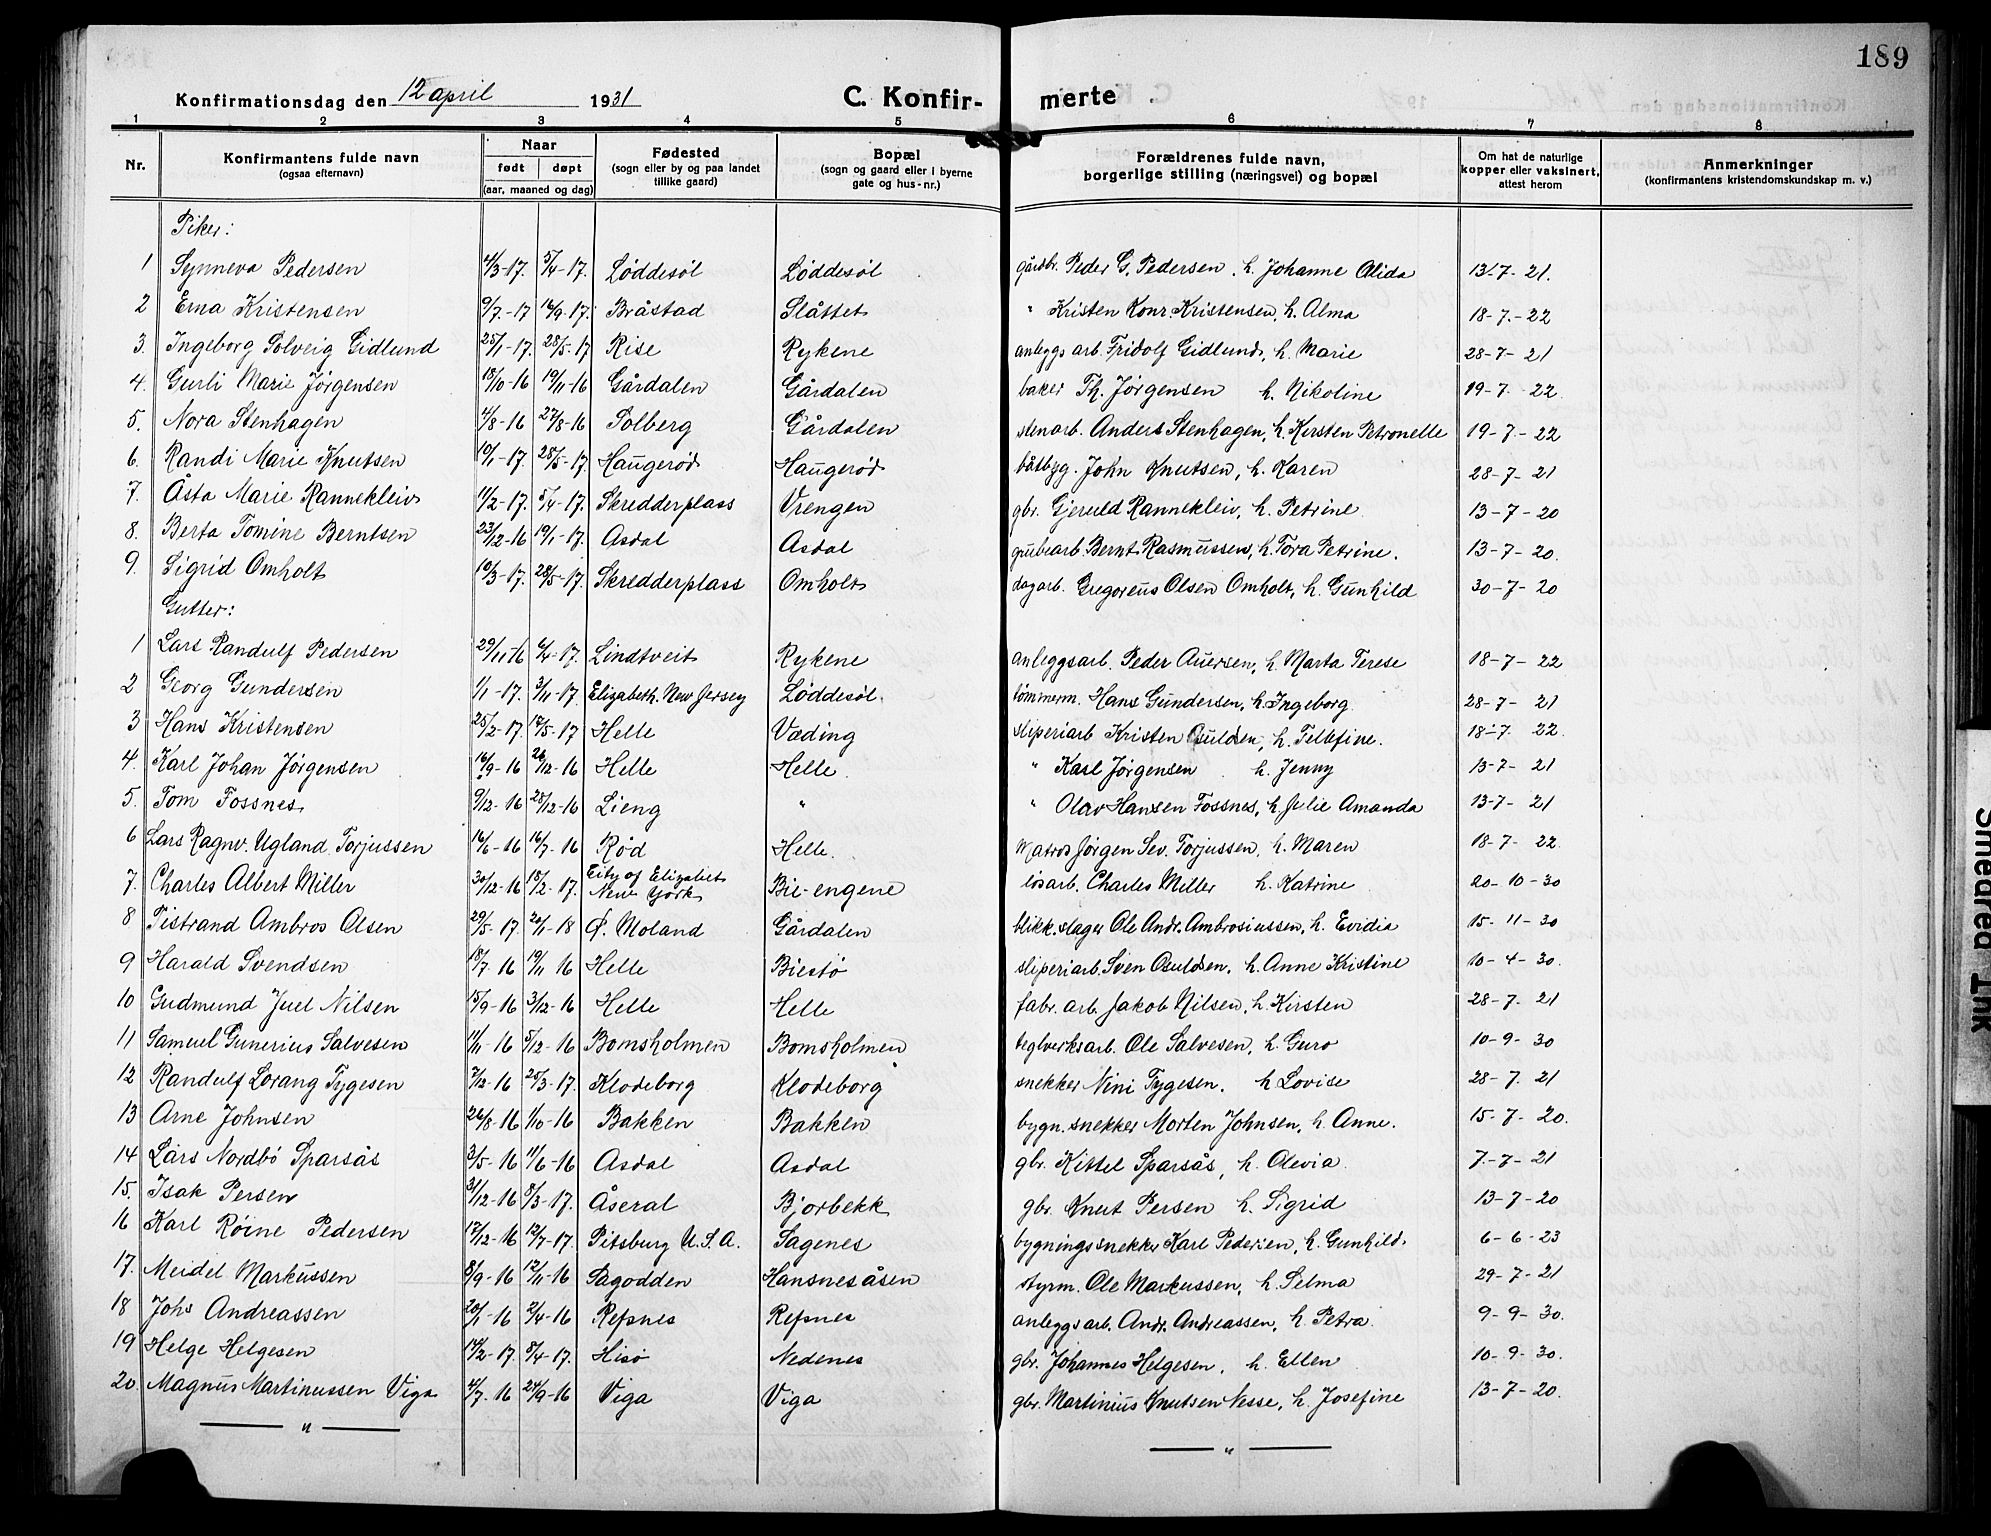 189
Konfirmationsdag den 12 april 1931 C. Konfir- merte
1 2 3 4 5 6 7 8
Nr. Konfirmantens fulde navn (ogsaa efternavn) Naar født døpt (aar, maaned og dag) Fødested (sogn eller by og paa landet tillike gaard) Bopæl (sogn og gaard eller i byerne gate og hus-nr.) Forældrenes fulde navn, borgerlige stilling (næringsvei) og bopæl Om hat de naturlige kopper eller vaksinert, attest herom Anmerkninger (konfirmantens kristendomskundskap m. v.)
Piker:
1 Synneva Pedersen 4/3-17. 5/4-17. Løddesøl Løddesøl gårdbr. Peder G. Pedersen. h. Johanne Alida 13-7-21.
2 Erna Kristensen 9/7-17 16/9-17. Bråstad Slåttet " Kristen Konr. Kristensen, h. Alma 18-7-22
3. Ingeborg Solveig Gidlund 25/1-17. 28/5-17 Rise Rykene anleggsarb. Fridolf Gidlund, h. Marie 28-7-21
4. Gurli Marie Jørgensen 18/10-16 19/11-16 Gårdalen Gårdalen baker Th. Jørgensen h. Nikoline 19-7-22
5. Nora Stenhagen 4/8-16 27/8-16 Solberg Gårdalen stenarb. Anders Stenhagen, h. Kirsten Petronelle 19-7-22
6. Randi Marie Knutsen 10/1-17. 28/5-17. Haugerød Haugerød båtbyg. John Knutsen, h. Karen 28-7-21
7. Åsta Marie Rannekleiv 11/2-17. 5/4-17. Skredderplass Vrengen gbr. Gjeruld Rannekleiv, h. Petrine 13-7-20
8. Berta Tomine Berntsen 23/12-16 19/1-17. Asdal Asdal grubearb Bernt Rasmussen, h. Tora Petrine. 13-7-20.
9. Sigrid Omholt 10/3-17. 28/5-17. Skredderplass Omholt dagarb. Gregoreus Olsen Omholt, h. Gunhild 30-7-20
Gutter:
1 Lars Randulf Pedersen 29/11-16 6/4-17. Lindtveit Rykene anleggsarb. Peder Auersen, h. Marta Terese 18-7-22
2 Georg Gundersen 1/1-17. 3/11-17. Elizabeth. New Jersey Løddesøl tømmerm. Hans Gundersen, h. Ingeborg. 28-7-21
3 Hans Kristensen 25/2-17. 17/5-17 Helle Væding sliperiarb Kristen Osuldsen, h. Tellefine. 18-7 22.
4. Karl Johan Jørgensen 16/9-16 26/12-16 Helle Helle. " Karl Jørgensen h. Jenny 13-7-21
5. Tom Fossnes 9/12-16 28/12-16 Lieng " " Olav Hansen Fossnes, h. Julie Amanda 13-7-21
6 Lars Ragnv. Ugland Torjussen 16/6-16 16/7-16 Rød Helle. Matros Jørgen Sev. Torjussen, h. Maren 18-7-22.
7. Charles Albert Miller 30/12-16 18/2-17. City of Elizabet New York Bie-engene løsarb. Charles Miller h. Katrine 20-10-30
8 Tistrand Ambros Olsen 29/5-17. 20/1-18 Ø. Moland Gårdalen blikk.slager Ole Andr. Ambrosiussen, h. Evidia 15-11-30
9 Harald Svendsen 18/7 16 19/11 16 Helle Biestø sliperiarb. Sven Osuldsen, h. Anne Kristine 10-4-30.
10 Gudmund Juel Nilsen 15/9-16 3/12-16 Helle Helle fabr. arb. Jakob Nilsen, h. Kirsten 28-7. 21
11 Samuel Gunerius Salvesen 11/11-16 5/12-16 Bomsholmen Bomsholmen teglverksarb. Ole Salvesen, h. Guro 10-9-30
12 Randulf Lorang Tygesen 7/12-16 25/3-17. Klodeborg Klodeborg snekker Nini Tygesen. h Lovise 28-7. 21
13 Arne Johnsen 26/8-16 1/10-16 Bakken Bakken bygn. snekker Morten Johnsen, h. Anne. 15-7-20.
14 Lars Nordbö Sparsås 3/5-16 11/6-16 Asdal Asdal gbr. Kittel Sparsås, h. Olevia. 7-7-21
15. Isak Persen 31/12-16 8/3-17. Åseral Bjorbekk gbr. Knut Persen h. Sigrid 13-7-20
16 Karl Røine Pedersen 17/12-16 12/7-17. Pitsburg U.S.A. Sagenes bygningssnekker Karl Pedersen, h. Gunhild. 6-6-23
17. Meidel Markussen 8/9-16 12/11-16 Pagodden Hansnesåsen styrm. Ole Markussen, h. Selma 29-7-21
18 Johs Andreassen 20/1-16 2/4-16 Refsnes Refsnes anleggsarb. Andr. Andreassen, h. Petra. 9-9-30.
19 Helge Helgesen 14/2-17. 8/4-17. Hisø Nedenes gbr. Johannes Helgesen, h. Ellen 10-9-30.
20. Magnus Martinussen Viga 4/7-16 24/9-16 Viga Viga gbr. Martinius Knutsen Nesse, h. Josefine 13-7-20.
Smeared Ink